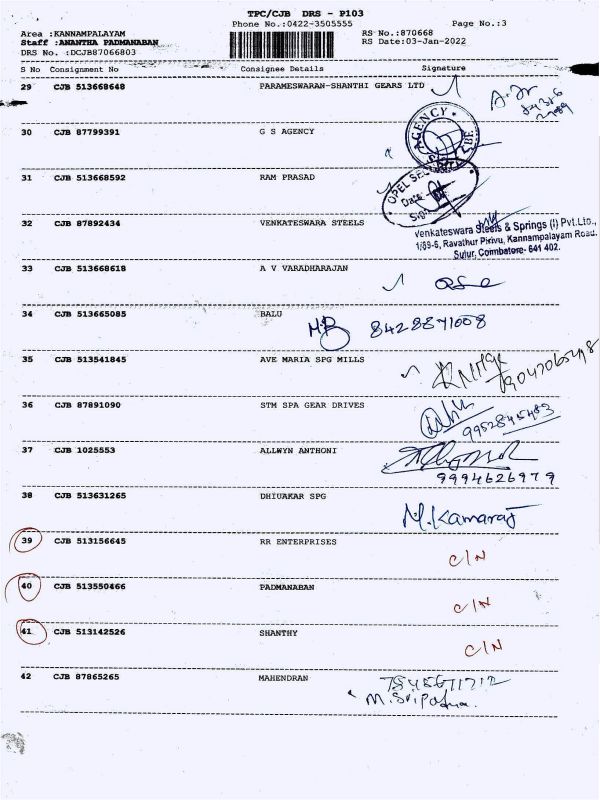 TPC/CJB DRS - P103
Phone No.:0422-3505555
Page No.:3
Area :KANNAMPALAYAM
RS No.:870668
Staff :ANANTHA PADMANABAN
RS Date:03-Jan-2022
DRS No. :DCJB87066803
S No Consignment No Consignee Details Signature
29 CJB 513668648 PARAMESWARAN-SHANTHI GEARS LTD
30 CJB 87799391 G S AGENCY
AGENCY
31 CJB 513668592 RAM PRASAD
Date:
32 CJB 87892434 VENKATESWARA STEELS
Venkateswara Steels & Springs (I) Pvt.Ltd.,
1/89-6, Ravathur Pirivu, Kannampalayam Road.
Sulur, Coimbatore- 641 402.
33 CJB 513668618 A V VARADHARAJAN
34 CJB 513665085 BALU
8428871008
35 CJB 513541845 AVE MARIA SPG MILLS
36 CJB 87891090 STM SPA GEAR DRIVES
9952845483
37 CJB 1025553 ALLWYN ANTHONI
9994626979
38 CJB 513631265 DHIUAKAR SPG
M.Kamaraj
39 CJB 513156645 RR ENTERPRISES
C/N
40 CJB 513550466 PADMANABAN
C/N
41 CJB 513142526 SHANTHY
C/N
42 CJB 87865265 MAHENDRAN